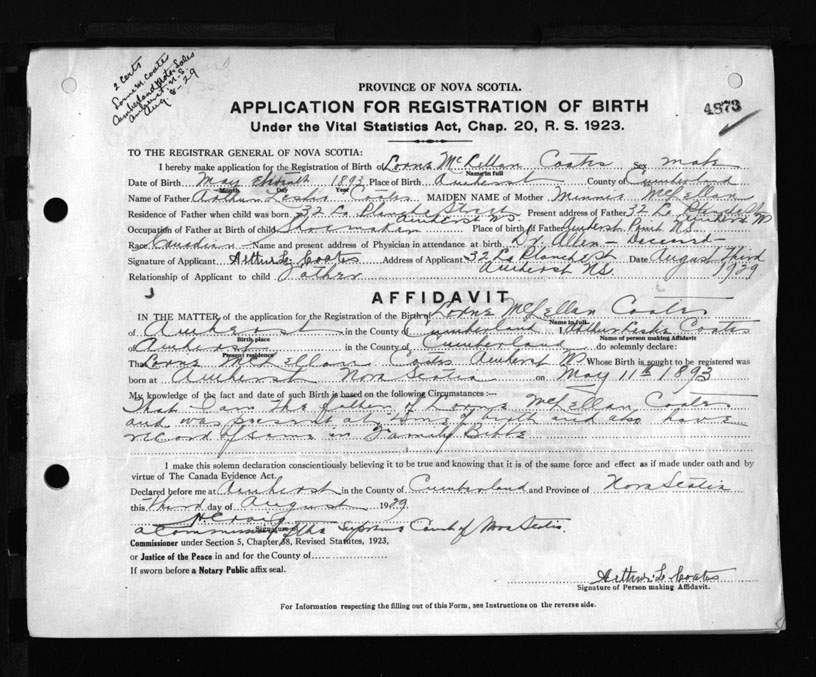 2 Certs
Lorne M. Coates
Cumberland Motor Sales
Amherst N.S.
Aug 8-29
PROVINCE OF NOVA SCOTIA.
APPLICATION FOR REGISTRATION OF BIRTH
4873
Under the Vital Statistics Act, Chap. 20, R. S. 1923.
TO THE REGISTRAR GENERAL OF NOVA SCOTIA:
I hereby make application for the Registration of Birth of Lorne McLellan Coates Sex male
Name in full
Date of Birth May Eleventh 1893 Place of Birth Amherst County of Cumberland
Month Day Year
Name of Father Arthur Leslie Coates MAIDEN NAME of Mother Minnie McLellan
Residence of Father when child was born 32 La Planche Street Amherst NS Present address of Father 32 La Planche St Amherst NS
Occupation of Father at Birth of child Shoemaker Place of birth of Father Amherst Point N.S.
Race Canadian Name and present address of Physician in attendance at birth Dr. Allen - Deceased
Signature of Applicant Arthur L. Coates Address of Applicant 32 La Planche St Amherst N.S. Date August Third 1929
Relationship of Applicant to child Father
AFFIDAVIT
IN THE MATTER of the application for the Registration of the Birth of Lorne McLellan Coates
Name in full
of Amherst in the County of Cumberland I, Arthur Leslie Coates
Birth place Name of person making Affidavit
of Amherst in the County of Cumberland do solemnly declare:
Present residence
That Lorne McLellan Coates Amherst NS Whose Birth is sought to be registered was
born at Amherst Nova Scotia on May 11th 1893
My knowledge of the fact and date of such Birth is based on the following Circumstances:—
That I am the father of Lorne McLellan Coates
and was present at time of birth and also have
record of same in Family Bible
I make this solemn declaration conscientiously believing it to be true and knowing that it is of the same force and effect as if made under oath and by
virtue of The Canada Evidence Act.
Declared before me at Amherst in the County of Cumberland and Province of Nova Scotia
this Third day of August 1929
Signature of
a Commissioner of the Supreme Court of Nova Scotia.
Commissioner under Section 5, Chapter 38, Revised Statutes, 1923,
or Justice of the Peace in and for the County of
If sworn before a Notary Public affix seal.
Arthur L Coates
Signature of Person making Affidavit.
For Information respecting the filling out of this Form, see Instructions on the reverse side.